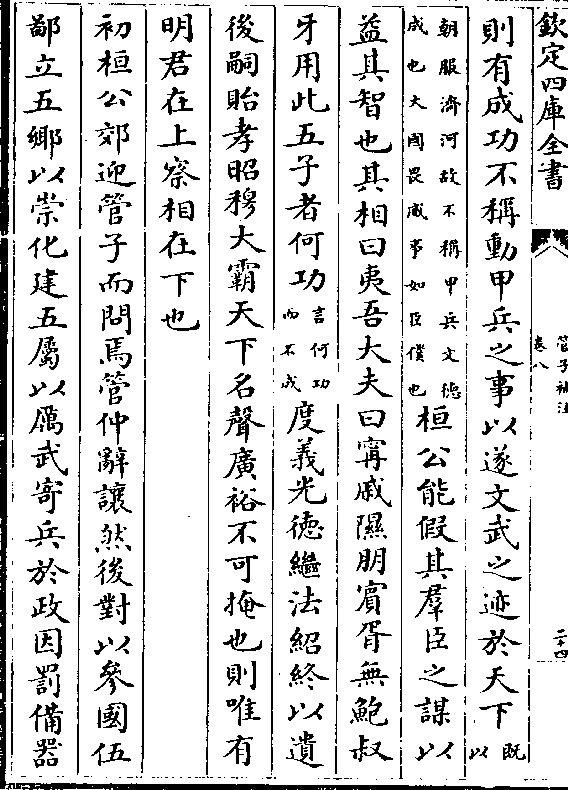 欽定四庫全書
管子補注
卷八
二十四
則有成功不稱動甲兵之事以遂文武之迹於天下既以
朝服濟河故不稱甲兵文德成也大國畏威事如臣僕也桓公能假其羣臣之謀以
益其智也其相曰夷吾大夫曰甯戚隰朋賓胥無鮑叔
牙用此五子者何功言何功而不成度義光德繼法紹終以遺
後嗣貽孝昭穆大霸天下名聲廣裕不可掩也則唯有
明君在上察相在下也
初桓公郊迎管子而問焉管仲辭讓然後對以參國伍
鄙立五鄉以崇化建五屬以厲武寄兵於政因罰備器